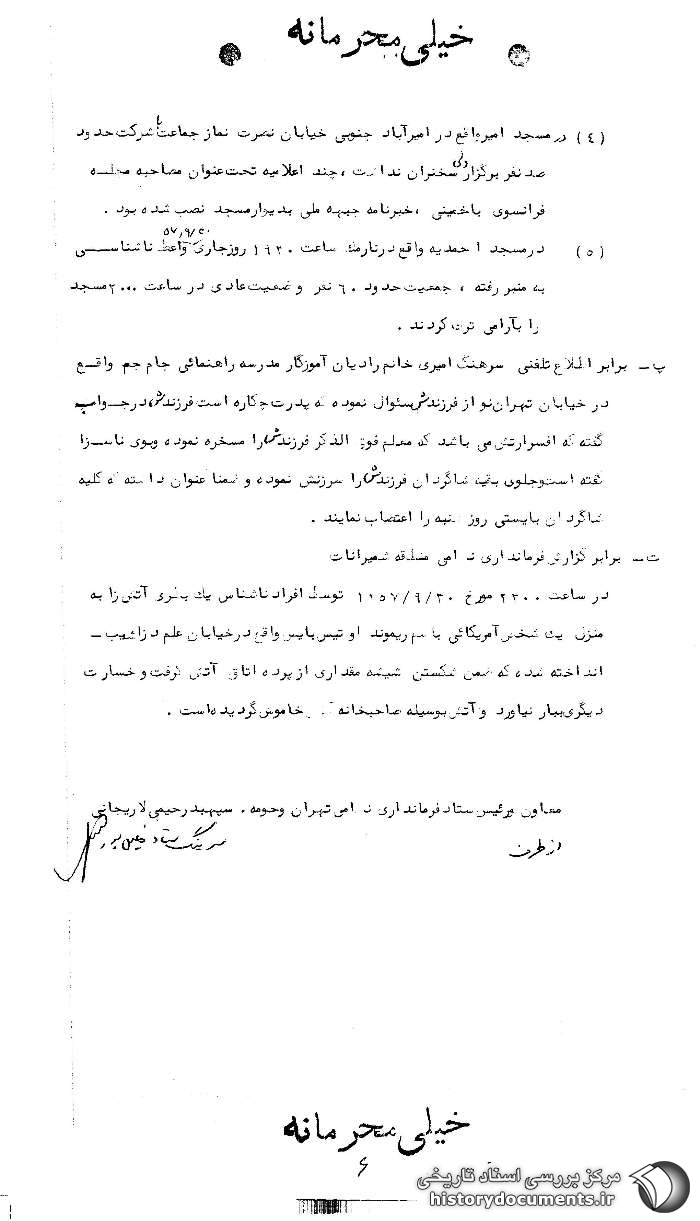 خیلی محرمانه
(٤) در مسجد امیر واقع در امیرآباد جنوبی خیابان نصرت نماز جماعت با شرکت حدود
صد نفر برگزار ولی سخنران نداشت ، چند اعلامیه تحت عنوان مصاحبه مجله
فرانسوی با خمینی ، خبرنامه جبهه ملی بدیوار مسجد نصب شده بود .
۵۷/۹/۳۰
(٥) در مسجد احمدیه واقع در نارمک ساعت ۱۹۳۰ روز جاری واعظ ناشناسی
به منبر رفته ، جمعیت حدود ۶۰ نفر وضعیت عادی در ساعت ۲۰۰۰ مسجد
را بآرامی ترک کردند .
پ ـ برابر اطلاع تلفنی سرهنگ امیری خانم رادیان آموزگار مدرسه راهنمائی جام جم واقع
در خیابان تهران نو از فرزندش سئوال نموده که پدرت چکاره است فرزندش در جواب
گفته که افسر ارتش می باشد که معلم فوق الذکر فرزندش را مسخره نموده وبوی ناسزا
گفته است وجلوی بقیه شاگردان فرزندش را سرزنش نموده و ضمنا عنوان داشته که کلیه
شاگردان بایستی روز شنبه را اعتصاب نمایند .
ت ـ برابر گزارش فرمانداری نظامی منطقه شمیرانات
در ساعت ۲۳۰۰ مورخ ۱۳۵۷/۹/۳۰ توسط افراد ناشناس یک بطری آتش زا به
منزل یک شخص آمریکائی باسم ریموند اوتیس بایس واقع در خیابان علم دزاشیب ـ
انداخته شده که ضمن شکستن شیشه مقداری از پرده اتاق آتش گرفت و خسارت
دیگری ببار نیاورد و آتش بوسیله صاحبخانه خاموش گردیده است .
معاون ورئیس ستاد فرمانداری نظامی تهران وحومه . سپهبد رحیمی لاریجانی
از طرف سرهنگ ستاد
خیلی محرمانه
۶
مرکز بررسی اسناد تاریخی
historydocuments.ir